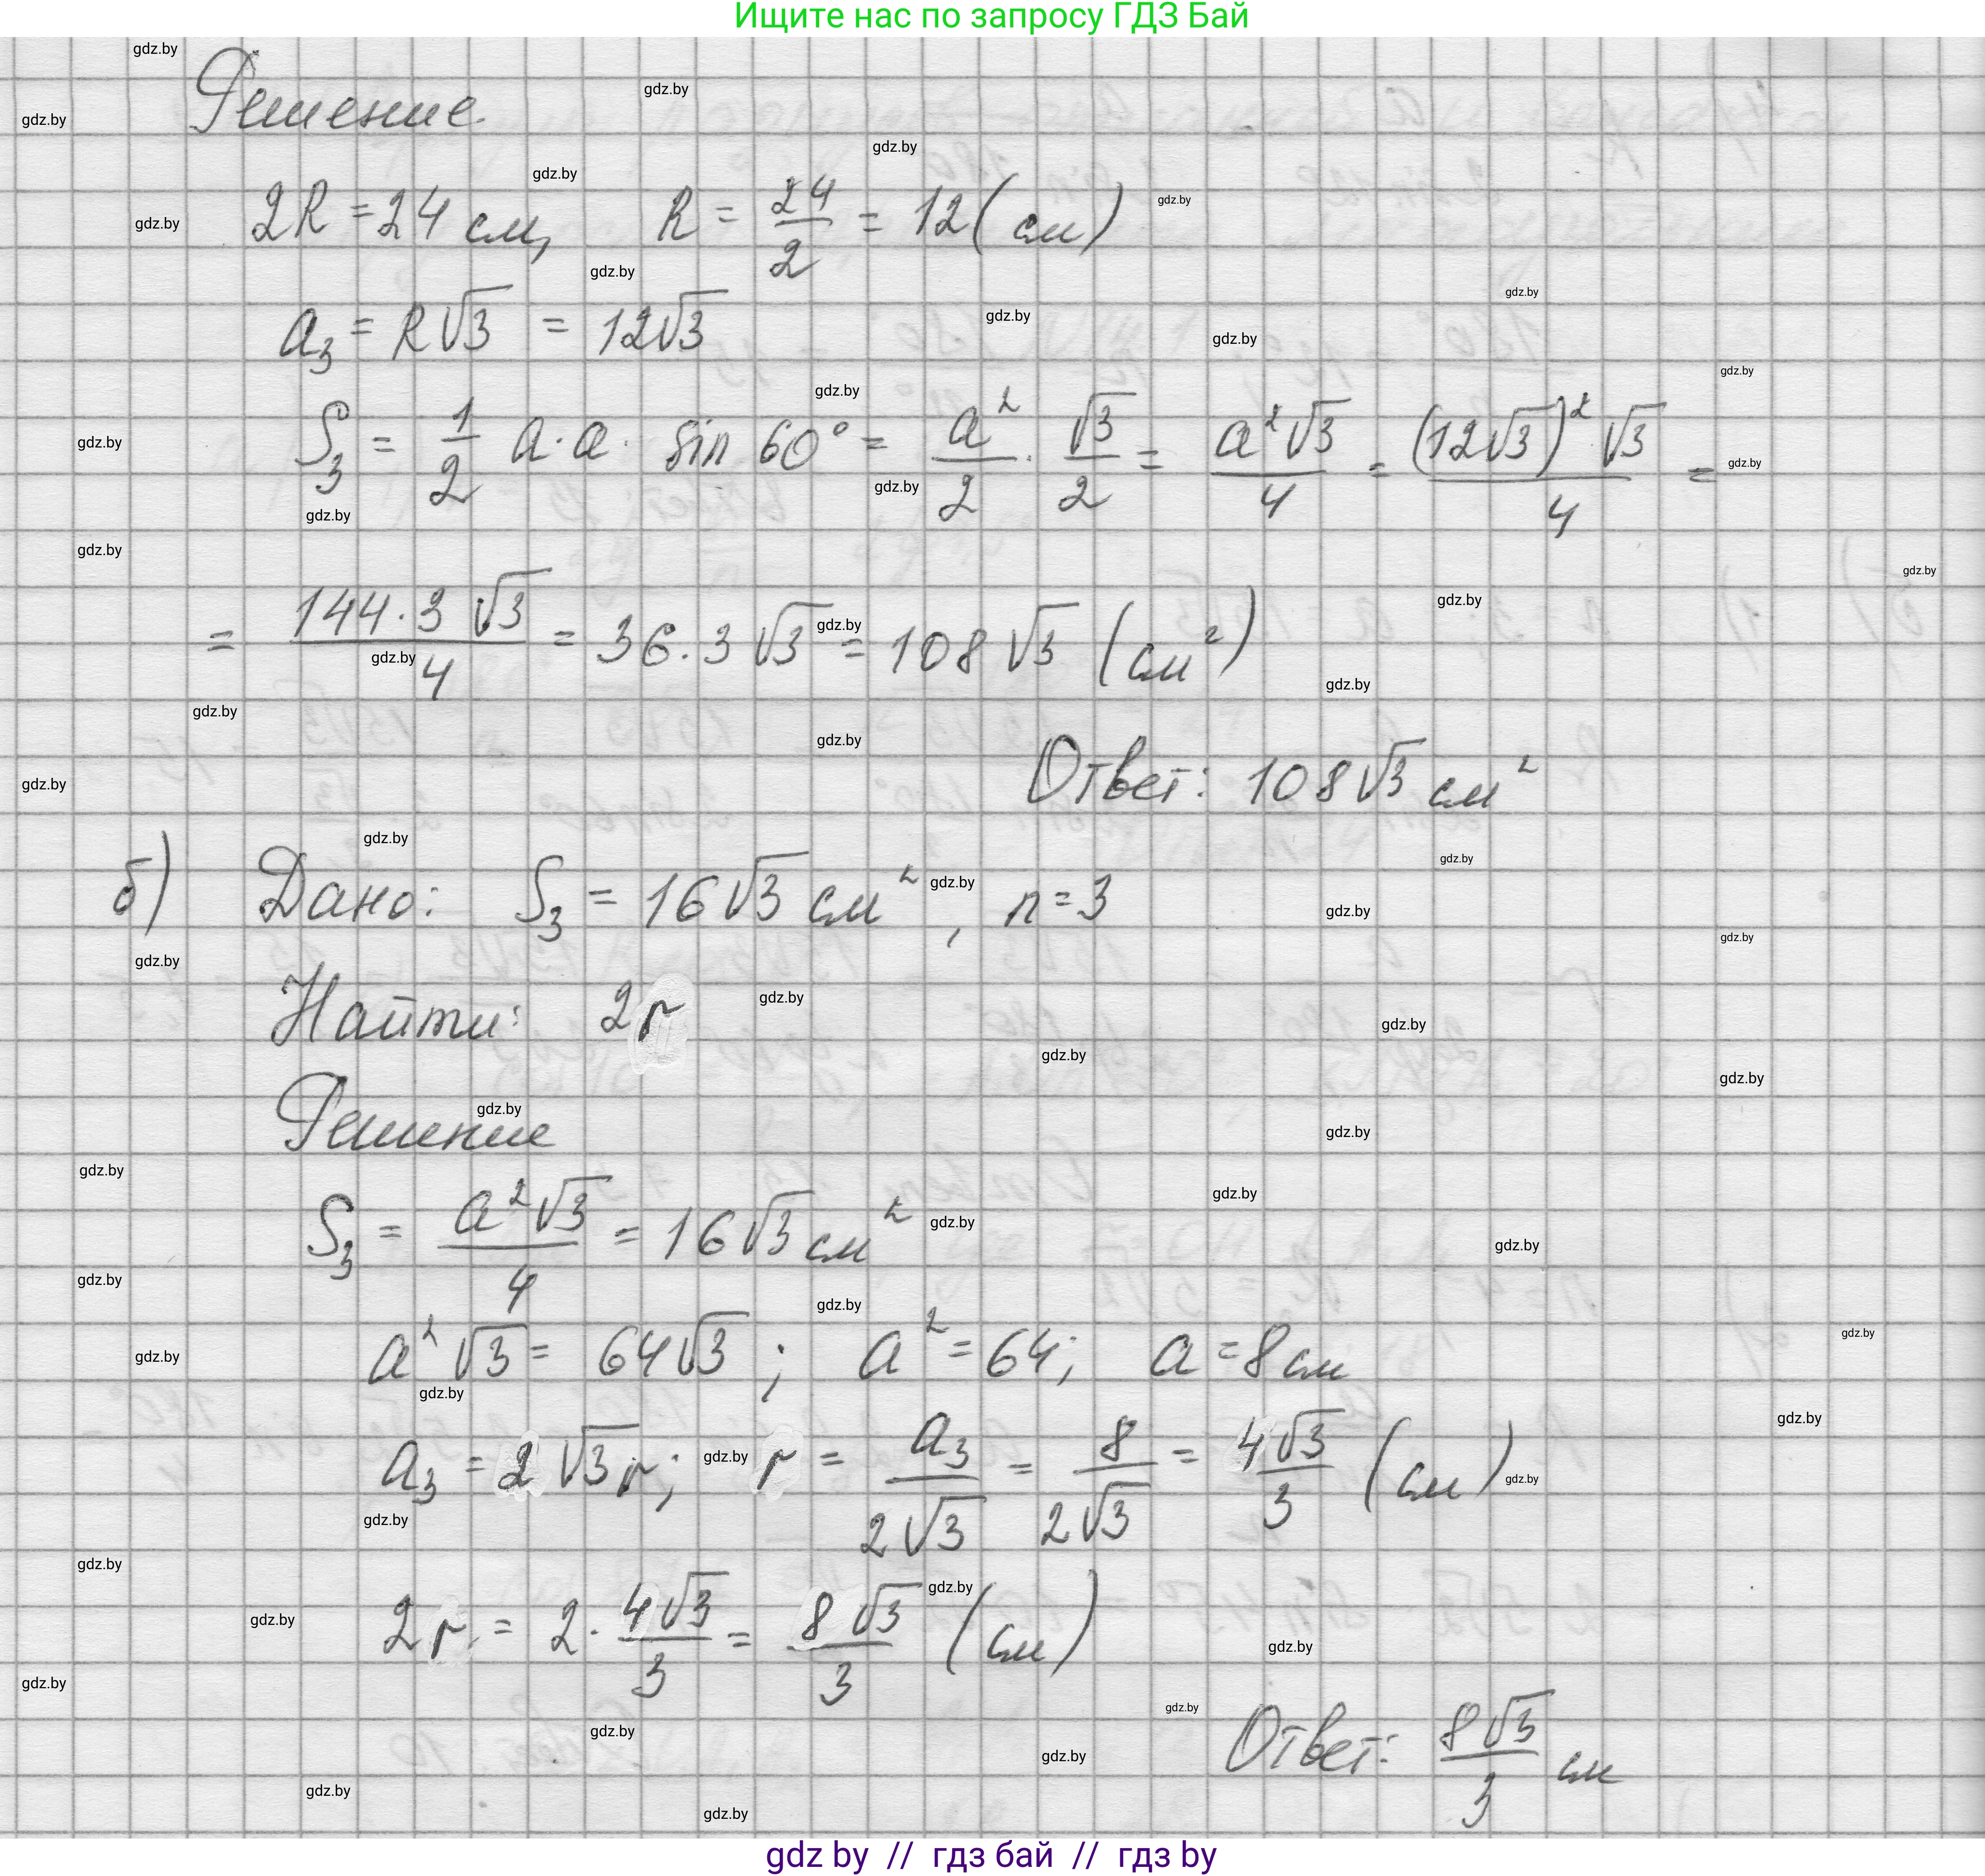 Ищите нас по запросу ГДЗ Бай
Решение
2R = 24 см, R = 24/2 = 12 (см)
a₃ = R√3 = 12√3
S₃ = 1/2 a · a · sin 60° = a²/2 · √3/2 = a²√3/4 = (12√3)²√3/4 =
= 144·3√3/4 = 36·3√3 = 108√3 (см²)
Ответ: 108√3 см²
б) Дано: S₃ = 16√3 см², n = 3
Найти: 2r
Решение
S₃ = a²√3/4 = 16√3 см²
a²√3 = 64√3; a² = 64; a = 8 см
a₃ = 2√3 r; r = a₃/2√3 = 8/2√3 = 4√3/3 (см)
2r = 2 · 4√3/3 = 8√3/3 (см)
Ответ: 8√3/3 см
gdz by // гдз бай // гдз by